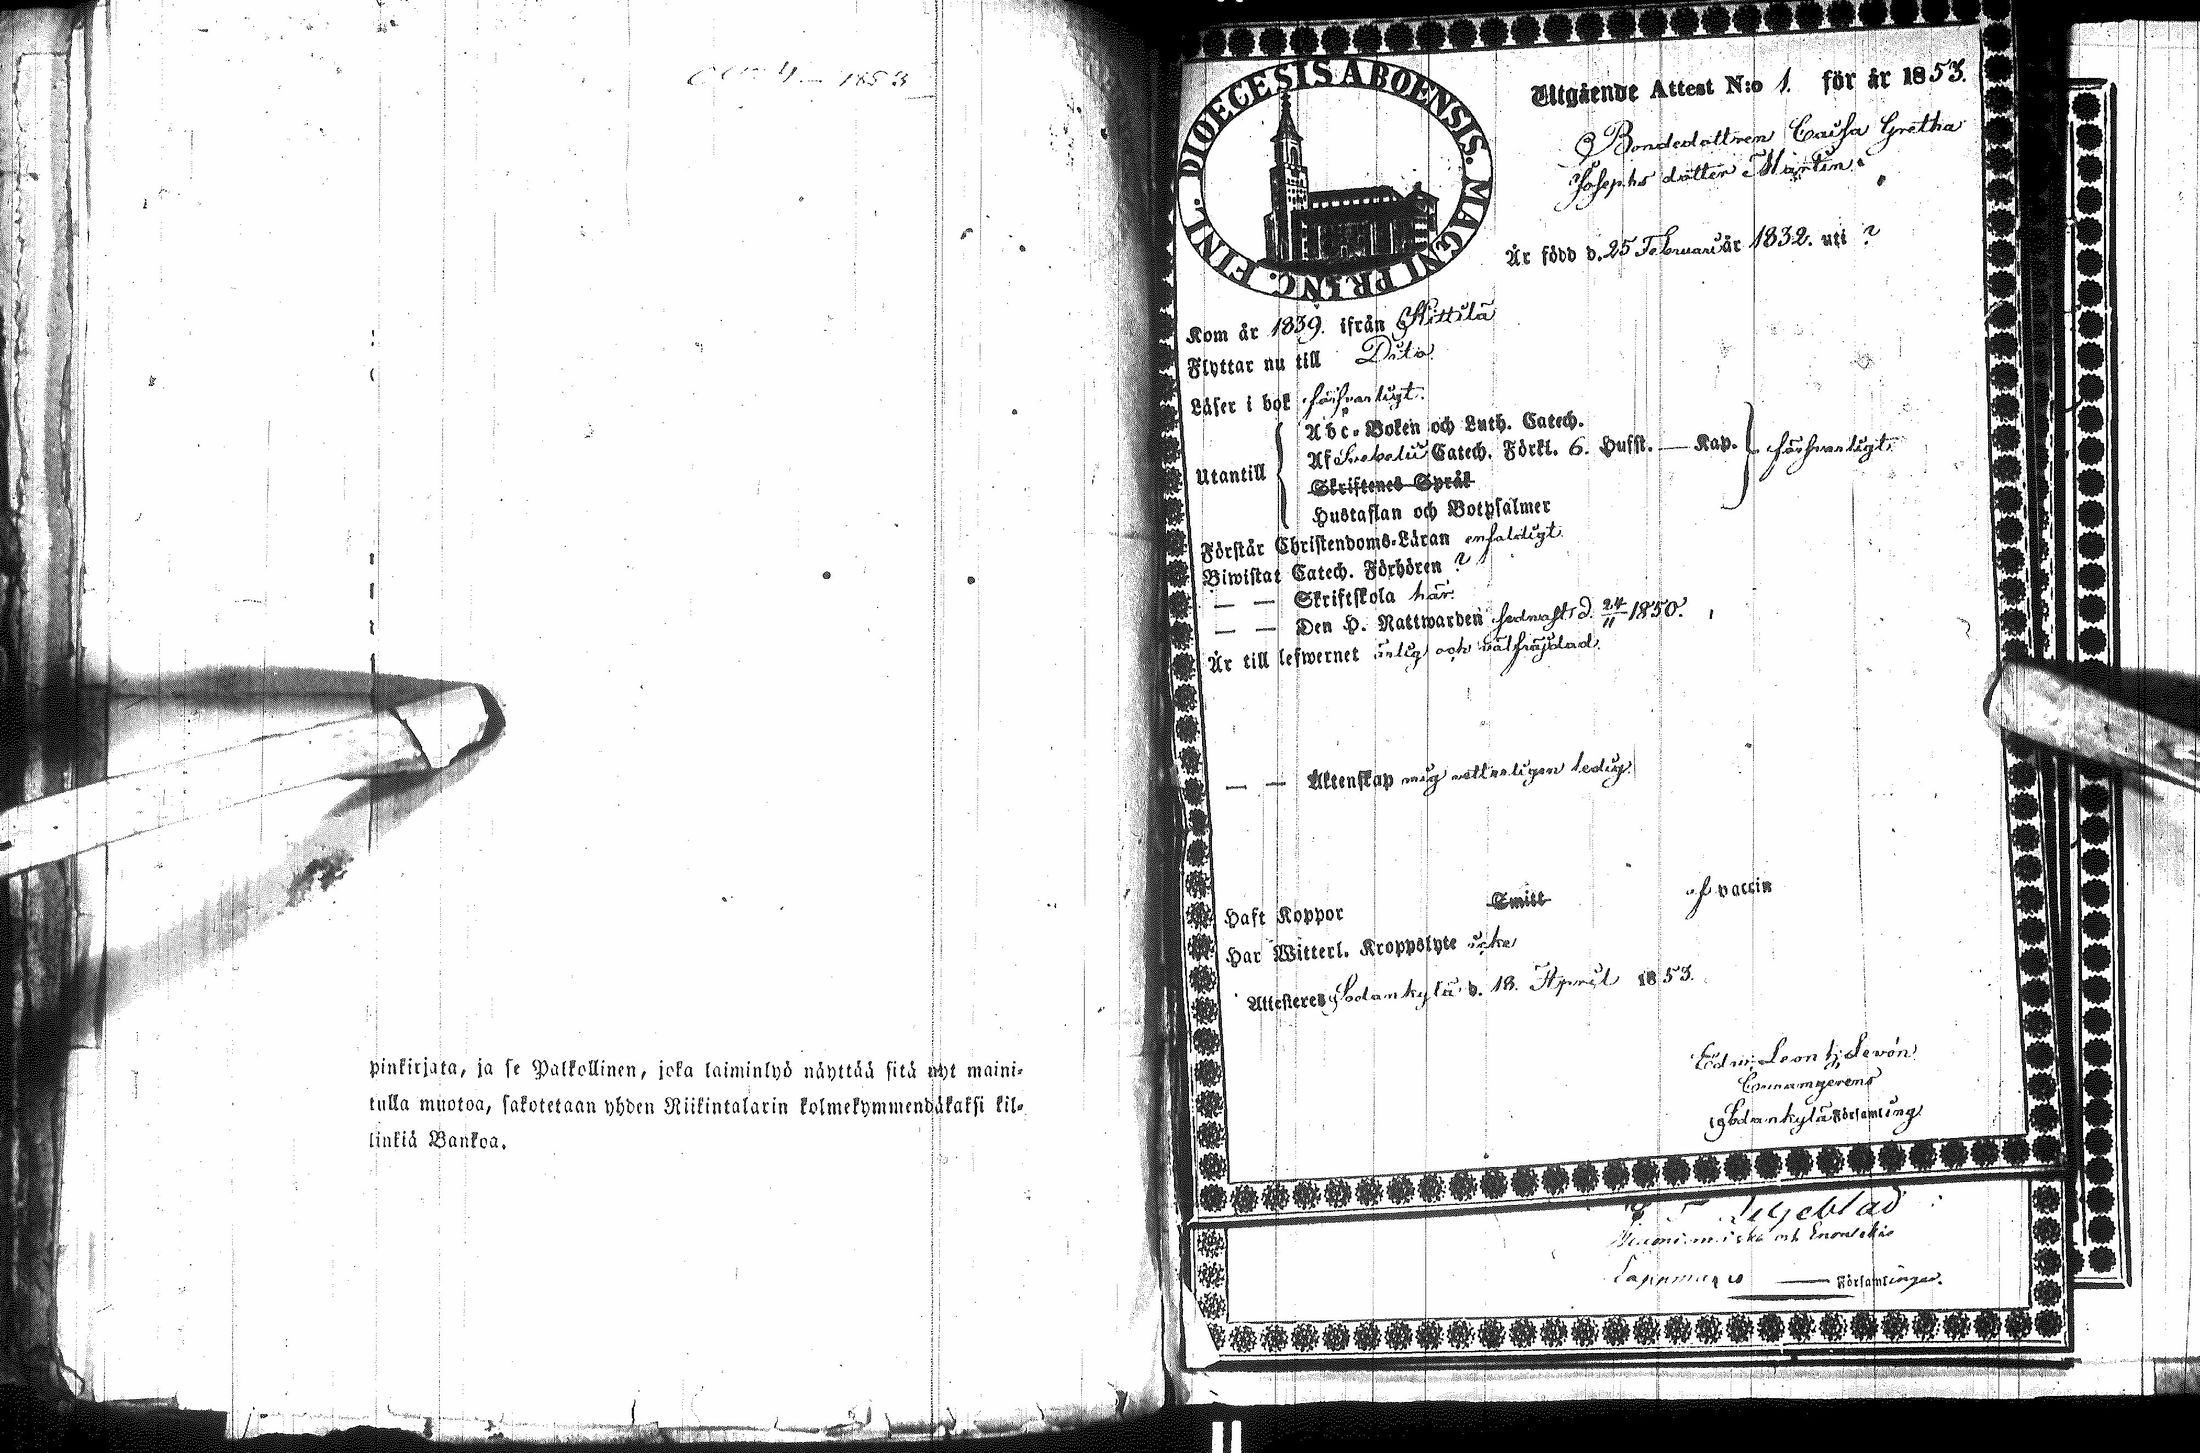 1853
pinkirjata, ja se Palkollinen, joka laiminlyö näyttää sitä nyt maini-
tulla muotoa, sakotetaan yhden Riikintalarin kolmekymmendäkaksi kil-
linkiä Bankoa.
DIOECESIS ABOENSIS. MAGNI PRINC. FINL.
Utgående Attest N:o 1. för år 1853.
Bondedottren Caisa Gretha
Josephs dotter Martin.
Är född d. 25 Februari år 1832. uti ?
Kom år 1839. ifrån Kittilä
Flyttar nu till Dito
Läser i bok försvarligt.
Utantill
Abc-Boken och Luth. Catech.
Af Svebelii Catech. Förkl. 6. Hufst. — Kap. försvarligt.
Skriftenes Språk
Hustaflan och Botpsalmer
Förstår Christendoms-Läran enfaldigt.
Biwistat Catech. Förhören ?
— — Skriftskola här.
— — Den H. Nattwarden sednast d. 24/11 1850.
Är till lefwernet ärlig och välfräjdad.
— — Äktenskap mig vetterligen ledig.
Haft Koppor Smitt af vaccin
Har Witterl. Kroppslyte icke
Attesteres Sodankylä d. 18. April 1853.
Edv. Leon Hj. Levón
Sodankylä Församling
Enontekis
Lappmarks — Församlingar.